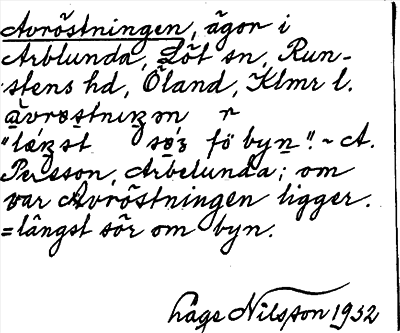 Avröstningen, ägor i
Arblunda, Löt sn, Run-
stens hd, Öland, Klmr l.
"længst sø̱r fö byn". ~ A.
Persson, Arbelunda; om
var Avröstningen ligger.
=längst sör om byn.
Nilsson 1932